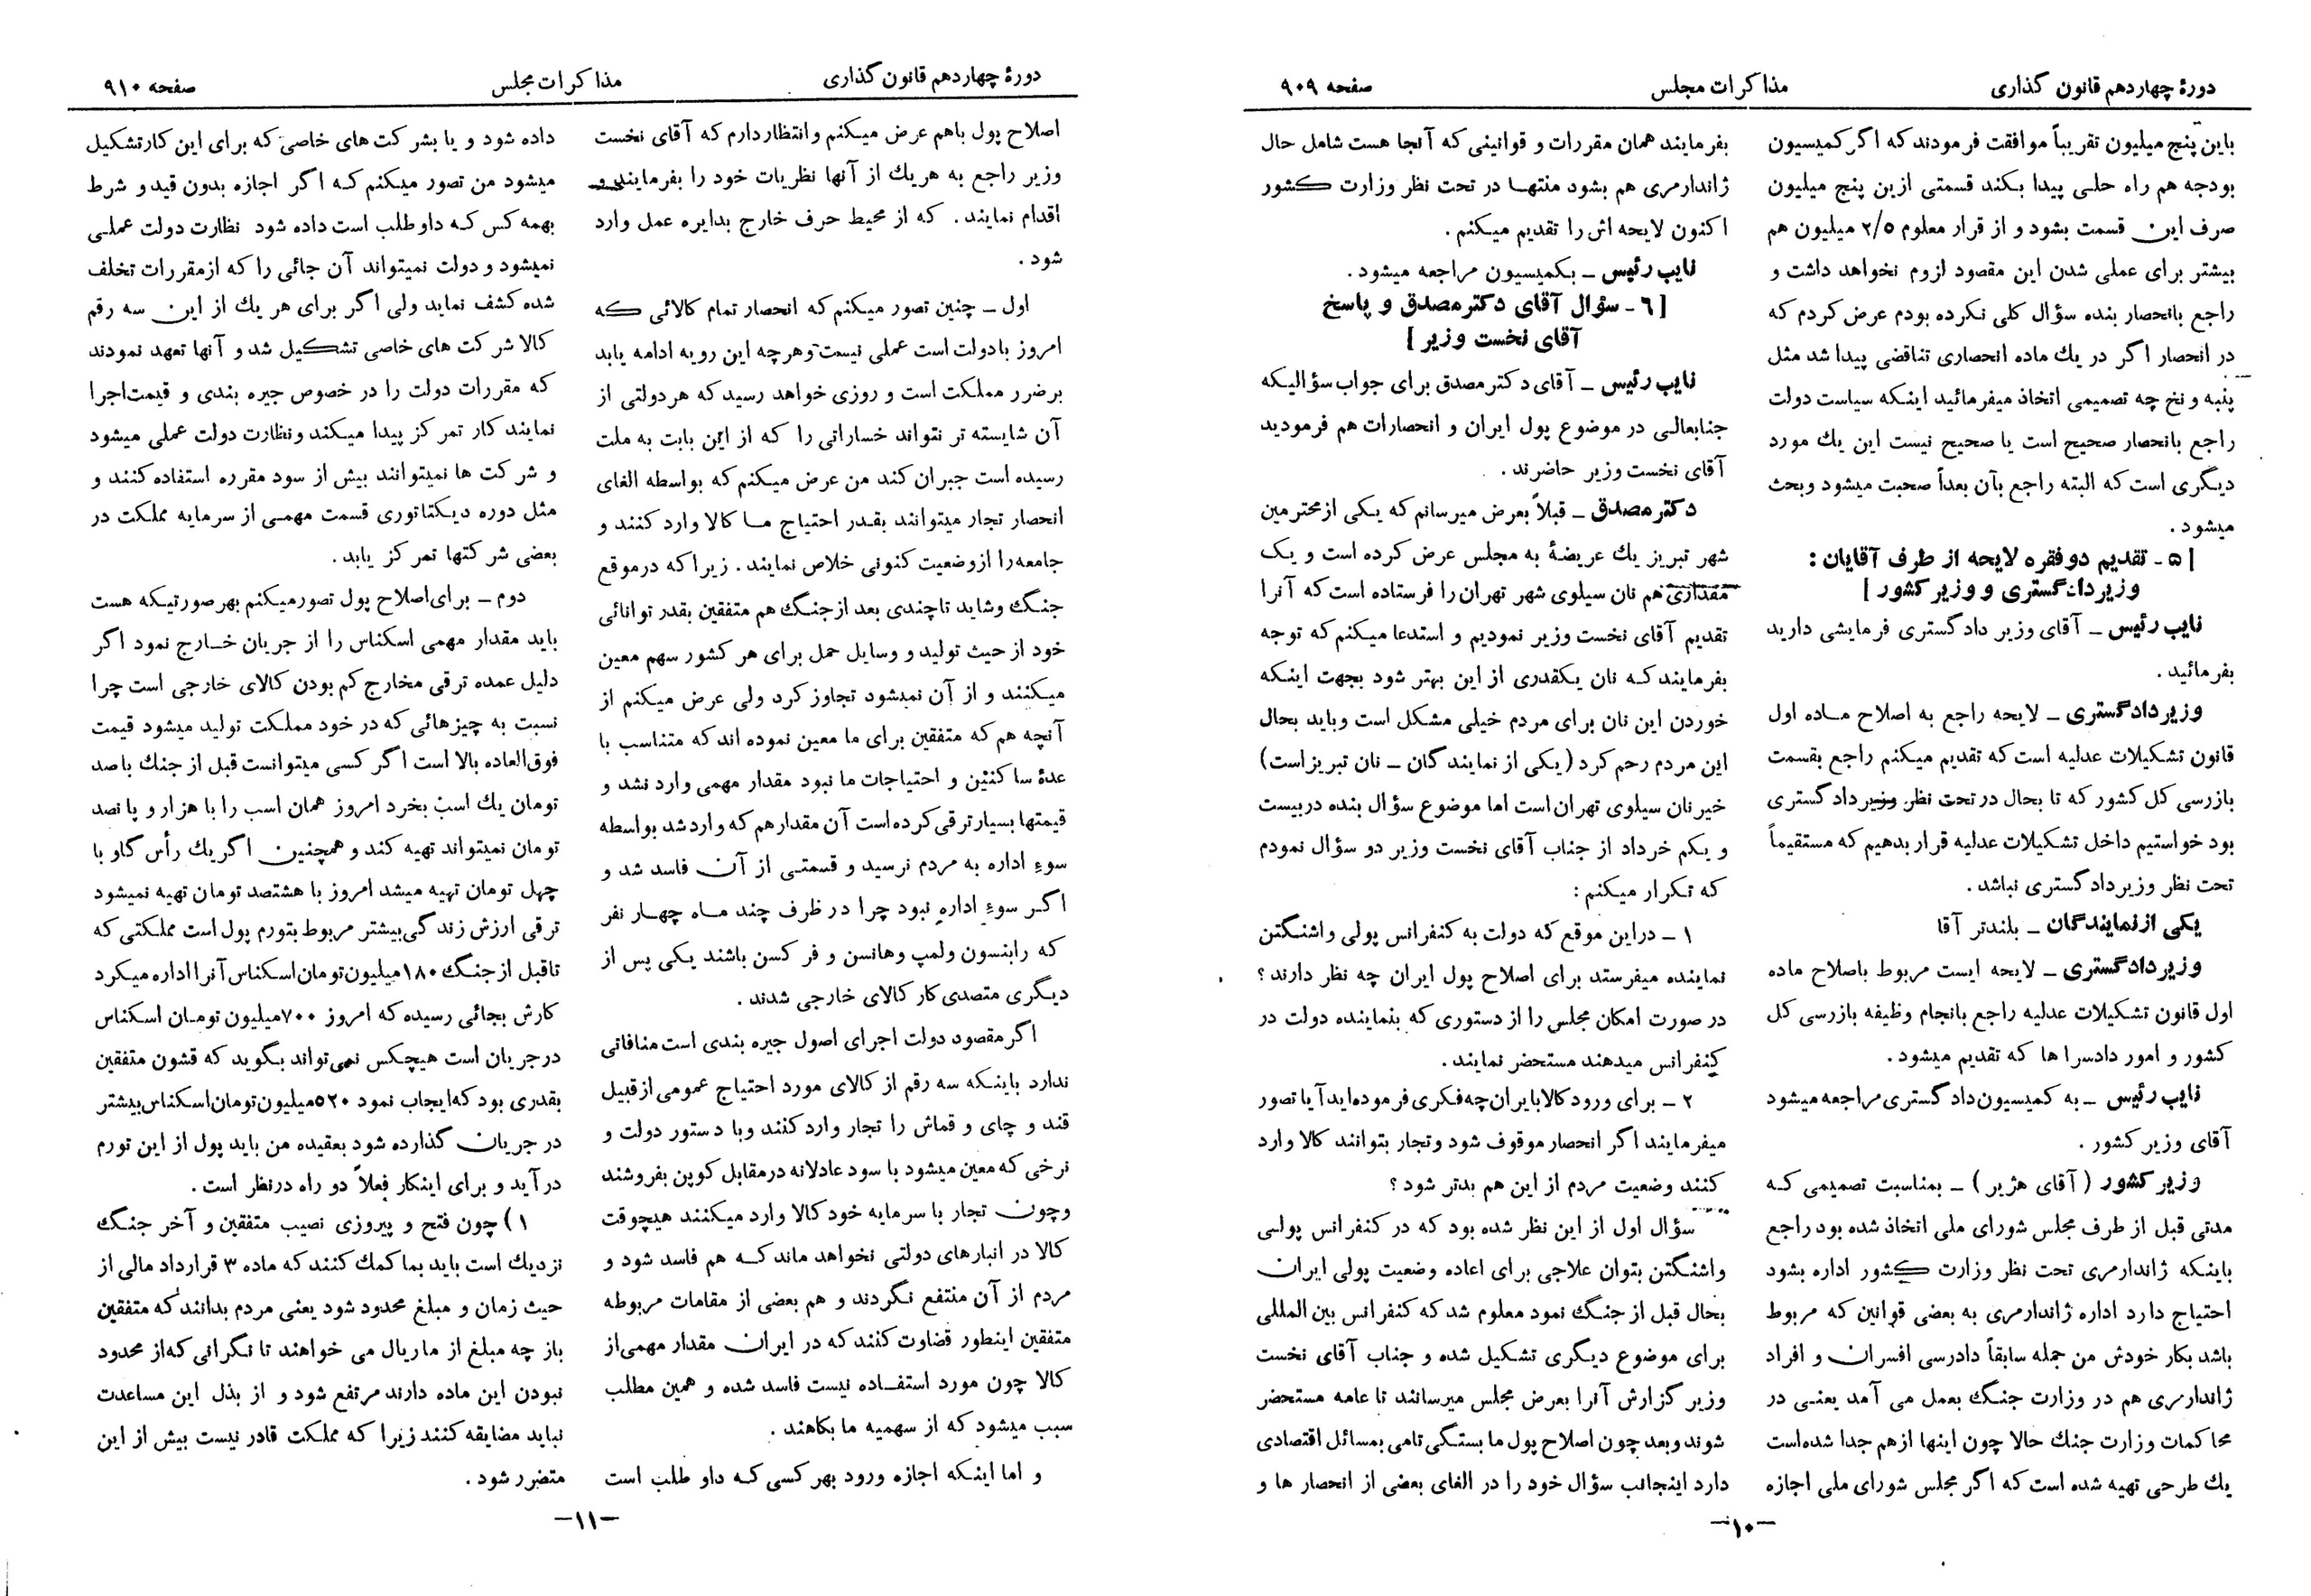 دورهٔ چهاردهم قانون گذاری
مذاکرات مجلس
صفحه ۹۰۹
باین پنج میلیون تقریباً موافقت فرمودند که اگر کمیسیون
بودجه هم راه حلی پیدا بکند قسمتی ازین پنج میلیون
صرف این قسمت بشود و از قرار معلوم ۲/۵ میلیون هم
بیشتر برای عملی شدن این مقصود لزوم نخواهد داشت و
راجع بانحصار بنده سؤال کلی نکرده بودم عرض کردم که
در انحصار اگر در یك ماده انحصاری تناقضی پیدا شد مثل
پنبه و نخ چه تصمیمی اتخاذ میفرمائید اینکه سیاست دولت
راجع بانحصار صحیح است یا صحیح نیست این یك مورد
دیگری است که البته راجع بآن بعداً صحبت میشود وبحث
میشود.
[ ۵ - تقدیم دوفقره لایحه از طرف آقایان :
وزیردادگستری و وزیر کشور ]
نایب رئیس – آقای وزیر دادگستری فرمایشی دارید
بفرمائید.
وزیردادگستری – لایحه راجع به اصلاح ماده اول
قانون تشکیلات عدلیه است که تقدیم میکنم راجع بقسمت
بازرسی کل کشور که تا بحال در تحت نظر وزیردادگستری
بود خواستیم داخل تشکیلات عدلیه قرار بدهیم که مستقیماً
تحت نظر وزیردادگستری نباشد.
یکی ازنمایندگان – بلندتر آقا
وزیردادگستری – لایحه ایست مربوط باصلاح ماده
اول قانون تشکیلات عدلیه راجع بانجام وظیفه بازرسی کل
کشور و امور دادسرا ها که تقدیم میشود.
نایب رئیس – به کمیسیون دادگستری مراجعه میشود
آقای وزیر کشور.
وزیر کشور (آقای هژیر) – بمناسبت تصمیمی که
مدتی قبل از طرف مجلس شورای ملی اتخاذ شده بود راجع
باینکه ژاندارمری تحت نظر وزارت کشور اداره بشود
احتیاج دارد اداره ژاندارمری به بعضی قوانین که مربوط
باشد بکار خودش من جمله سابقاً دادرسی افسران و افراد
ژاندارمری هم در وزارت جنگ بعمل می آمد یعنی در
محاکمات وزارت جنك حالا چون اینها ازهم جدا شده‌است
یك طرحی تهیه شده است که اگر مجلس شورای ملی اجازه
بفرمایند همان مقررات و قوانینی که آنجا هست شامل حال
ژاندارمری هم بشود منتها در تحت نظر وزارت کشور
اکنون لایحه اش را تقدیم میکنم.
نایب رئیس – بکمیسیون مراجعه میشود.
[ ۶ - سؤال آقای دکترمصدق و پاسخ
آقای نخست وزیر ]
نایب رئیس – آقای دکتر مصدق برای جواب سؤالیکه
جنابعالی در موضوع پول ایران و انحصارات هم فرمودید
آقای نخست وزیر حاضرند.
دکترمصدق – قبلاً بعرض میرسانم که یکی ازمحترمین
شهر تبریز یك عریضهٔ به مجلس عرض کرده است و یک
مقداری هم نان سیلوی شهر تهران را فرستاده است که آنرا
تقدیم آقای نخست وزیر نمودیم و استدعا میکنم که توجه
بفرمایند که نان یکقدری از این بهتر شود بجهت اینکه
خوردن این نان برای مردم خیلی مشکل است وباید بحال
این مردم رحم کرد (یکی از نمایندگان – نان تبریزاست)
خیر نان سیلوی تهران است اما موضوع سؤال بنده در بیست
و یکم خرداد از جناب آقای نخست وزیر دو سؤال نمودم
که تکرار میکنم :
۱ – در این موقع که دولت به کنفرانس پولی واشنگتن
نماینده میفرستد برای اصلاح پول ایران چه نظر دارند؟
در صورت امکان مجلس را از دستوری که بنماینده دولت در
کنفرانس میدهند مستحضر نمایند.
۲ – برای ورود کالا بایران چه فکری فرموده‌اید آیا تصور
میفرمایند اگر انحصار موقوف شود وتجار بتوانند کالا وارد
کنند وضعیت مردم از این هم بدتر شود؟
سؤال اول از این نظر شده بود که در کنفرانس پولی
واشنگتن بتوان علاجی برای اعاده وضعیت پولی ایران
بحال قبل از جنگ نمود معلوم شد که کنفرانس بین المللی
برای موضوع دیگری تشکیل شده و جناب آقای نخست
وزیر گزارش آنرا بعرض مجلس میرسانند تا عامه مستحضر
شوند وبعد چون اصلاح پول ما بستگی تامی بمسائل اقتصادی
دارد اینجانب سؤال خود را در الغای بعضی از انحصار ها و
–۱۰–
دورهٔ چهاردهم قانون گذاری
مذاکرات مجلس
صفحه ۹۱۰
اصلاح پول باهم عرض میکنم وانتظاردارم که آقای نخست
وزیر راجع به هریك از آنها نظریات خود را بفرمایند و
اقدام نمایند. که از محیط حرف خارج بدایره عمل وارد
شود.
اول – چنین تصور میکنم که انحصار تمام کالائی که
امروز بادولت است عملی نیست وهرچه این رویه ادامه یابد
برضرر مملکت است و روزی خواهد رسید که هردولتی از
آن شایسته تر نتواند خساراتی را که از این بابت به ملت
رسیده است جبران کند من عرض میکنم که بواسطه الغای
انحصار تجار میتوانند بقدر احتیاج ما کالا وارد کنند و
جامعه را ازوضعیت کنونی خلاص نمایند. زیرا که درموقع
جنگ وشاید تاچندی بعد ازجنگ هم متفقین بقدر توانائی
خود از حیث تولید و وسایل حمل برای هر کشور سهم معین
میکنند و از آن نمیشود تجاوز کرد ولی عرض میکنم از
آنچه هم که متفقین برای ما معین نموده اند که متناسب با
عدهٔ ساکنین و احتیاجات ما نبود مقدار مهمی وارد نشد و
قیمتها بسیار ترقی کرده است آن مقدارهم که وارد شد بواسطه
سوء اداره به مردم نرسید و قسمتی از آن فاسد شد و
اگر سوء اداره نبود چرا در ظرف چند ماه چهار نفر
که رابنسون ولمپ وهانسن و فر کسن باشند یکی پس از
دیگری متصدی کار کالای خارجی شدند.
اگر مقصود دولت اجرای اصول جیره بندی است منافاتی
ندارد باینکه سه رقم از کالای مورد احتیاج عمومی ازقبیل
قند و چای و قماش را تجار وارد کنند وبا دستور دولت و
نرخی که معین میشود با سود عادلانه درمقابل کوپن بفروشند
وچون تجار با سرمایه خود کالا وارد میکنند هیچوقت
کالا در انبارهای دولتی نخواهد ماند که هم فاسد شود و
مردم از آن منتفع نگردند و هم بعضی از مقامات مربوطه
متفقین اینطور قضاوت کنند که در ایران مقدار مهمی‌از
کالا چون مورد استفاده نیست فاسد شده و همین مطلب
سبب میشود که از سهمیه ما بکاهند.
و اما اینکه اجازه ورود بهر کسی که داو طلب است
داده شود و یا بشرکت های خاصی که برای این کارتشکیل
میشود من تصور میکنم که اگر اجازه بدون قید و شرط
بهمه کس که داوطلب است داده شود نظارت دولت عملی
نمیشود و دولت نمیتواند آن جائی را که ازمقررات تخلف
شده کشف نماید ولی اگر برای هر یك از این سه رقم
کالا شرکت های خاصی تشکیل شد و آنها تعهد نمودند
که مقررات دولت را در خصوص جیره بندی و قیمت‌اجرا
نمایند کار تمرکز پیدا میکند ونظارت دولت عملی میشود
و شرکت ها نمیتوانند بیش از سود مقرره استفاده کنند و
مثل دوره دیکتاتوری قسمت مهمی از سرمایه مملکت در
بعضی شرکتها تمرکز یابد.
دوم – برای‌اصلاح پول تصورمیکنم بهرصورتیکه هست
باید مقدار مهمی اسکناس را از جریان خارج نمود اگر
دلیل عمده ترقی مخارج کم بودن کالای خارجی است چرا
نسبت به چیزهائی که در خود مملکت تولید میشود قیمت
فوق‌العاده بالا است اگر کسی میتوانست قبل از جنك باصد
تومان یك اسب بخرد امروز همان اسب را با هزار و پانصد
تومان نمیتواند تهیه کند و همچنین اگر یك رأس گاو با
چهل تومان تهیه میشد امروز با هشتصد تومان تهیه نمیشود
ترقی ارزش زندگی‌بیشتر مربوط بتورم پول است مملکتی که
تاقبل ازجنگ ۱۸۰میلیون‌تومان‌اسکناس آنرا اداره میکرد
کارش بجائی رسیده که امروز ۷۰۰میلیون تومان اسکناس
درجریان است هیچکس نمی‌تواند بگوید که قشون متفقین
بقدری بود که‌ایجاب نمود ۵۲۰میلیون‌تومان‌اسکناس‌بیشتر
در جریان گذارده شود بعقیده من باید پول از این تورم
درآید و برای اینکار فعلاً دو راه درنظر است.
۱) چون فتح و پیروزی نصیب متفقین و آخر جنگ
نزدیك است باید بما کمك کنند که ماده ۳ قرارداد مالی از
حیث زمان و مبلغ محدود شود یعنی مردم بدانند که متفقین
باز چه مبلغ از ما ریال می خواهند تا نگرانی که‌از محدود
نبودن این ماده دارند مرتفع شود و از بذل این مساعدت
نباید مضایقه کنند زیرا که مملکت قادر نیست بیش از این
متضرر شود.
–۱۱–